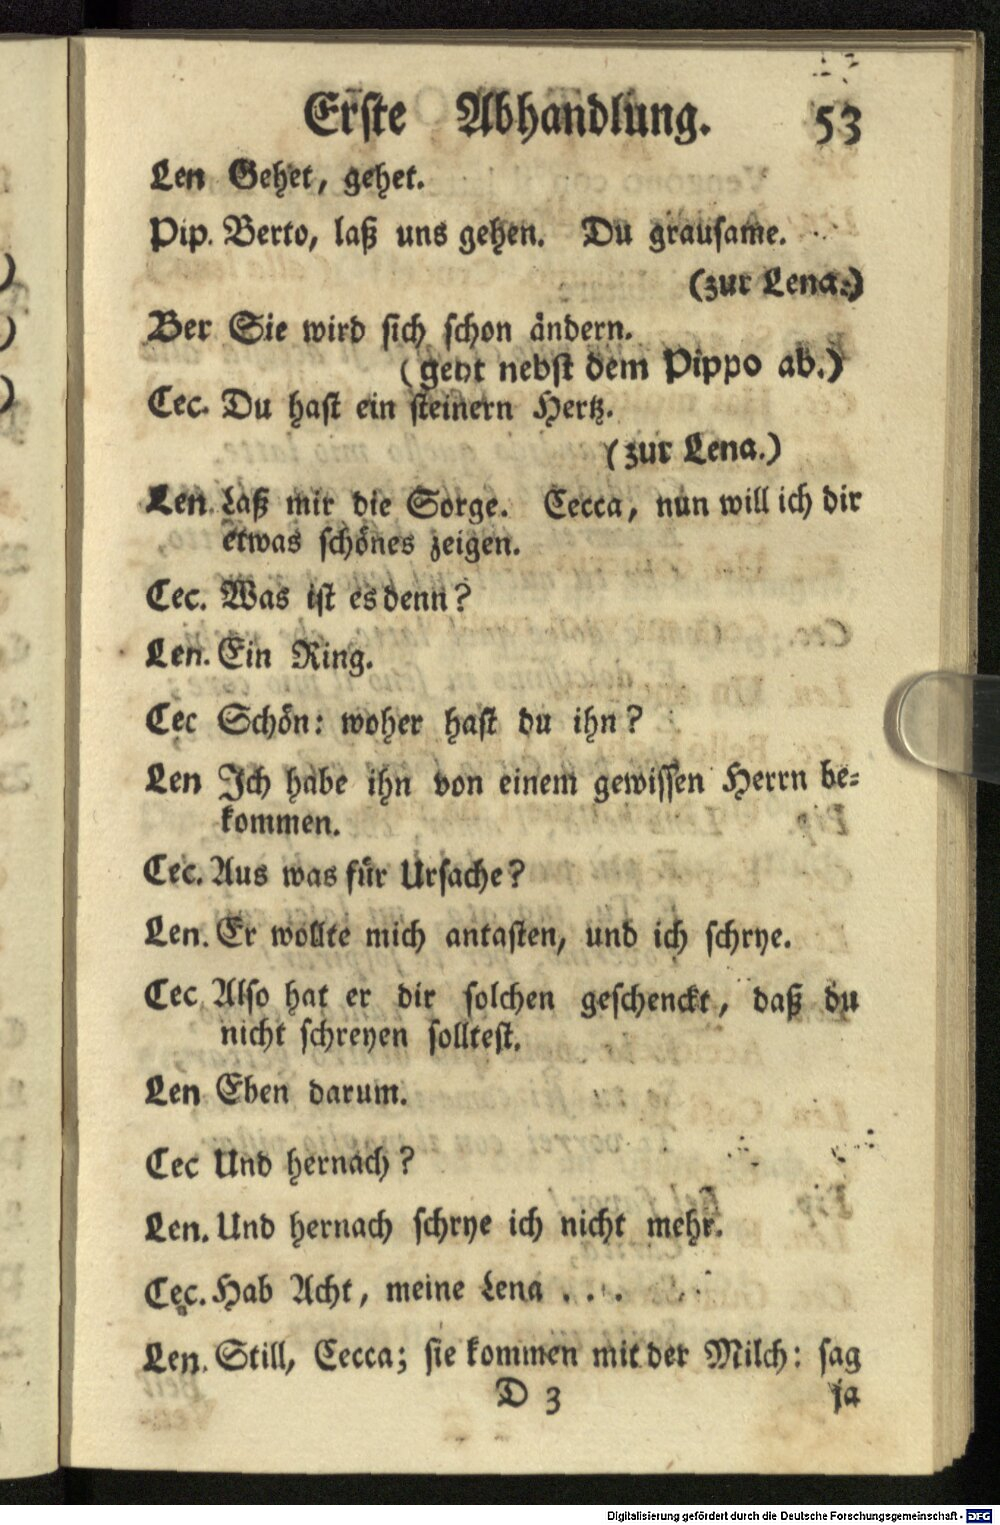 Erste Abhandlung. 53
Len Gehet, gehet.
Pip. Berto, laß uns gehen. Du grausame.
(zur Lena.)
Ber Sie wird sich schon ändern.
(geht nebst dem Pippo ab.)
Cec. Du hast ein steinern Hertz.
(zur Lena.)
Len. Laß mir die Sorge. Cecca, nun will ich dir
etwas schönes zeigen.
Cec. Was ist es denn?
Len. Ein Ring.
Cec Schön: woher hast du ihn?
Len Ich habe ihn von einem gewissen Herrn be-
kommen.
Cec. Aus was für Ursache?
Len. Er wollte mich antasten, und ich schrye.
Cec Also hat er dir solchen geschenckt, daß du
nicht schreyen solltest.
Len Eben darum.
Cec Und hernach?
Len. Und hernach schrye ich nicht mehr.
Cec. Hab Acht, meine Lena . . .
Len. Still, Cecca; sie kommen mit der Milch: sag
D 3 ja
Digitalisierung gefördert durch die Deutsche Forschungsgemeinschaft - DFG